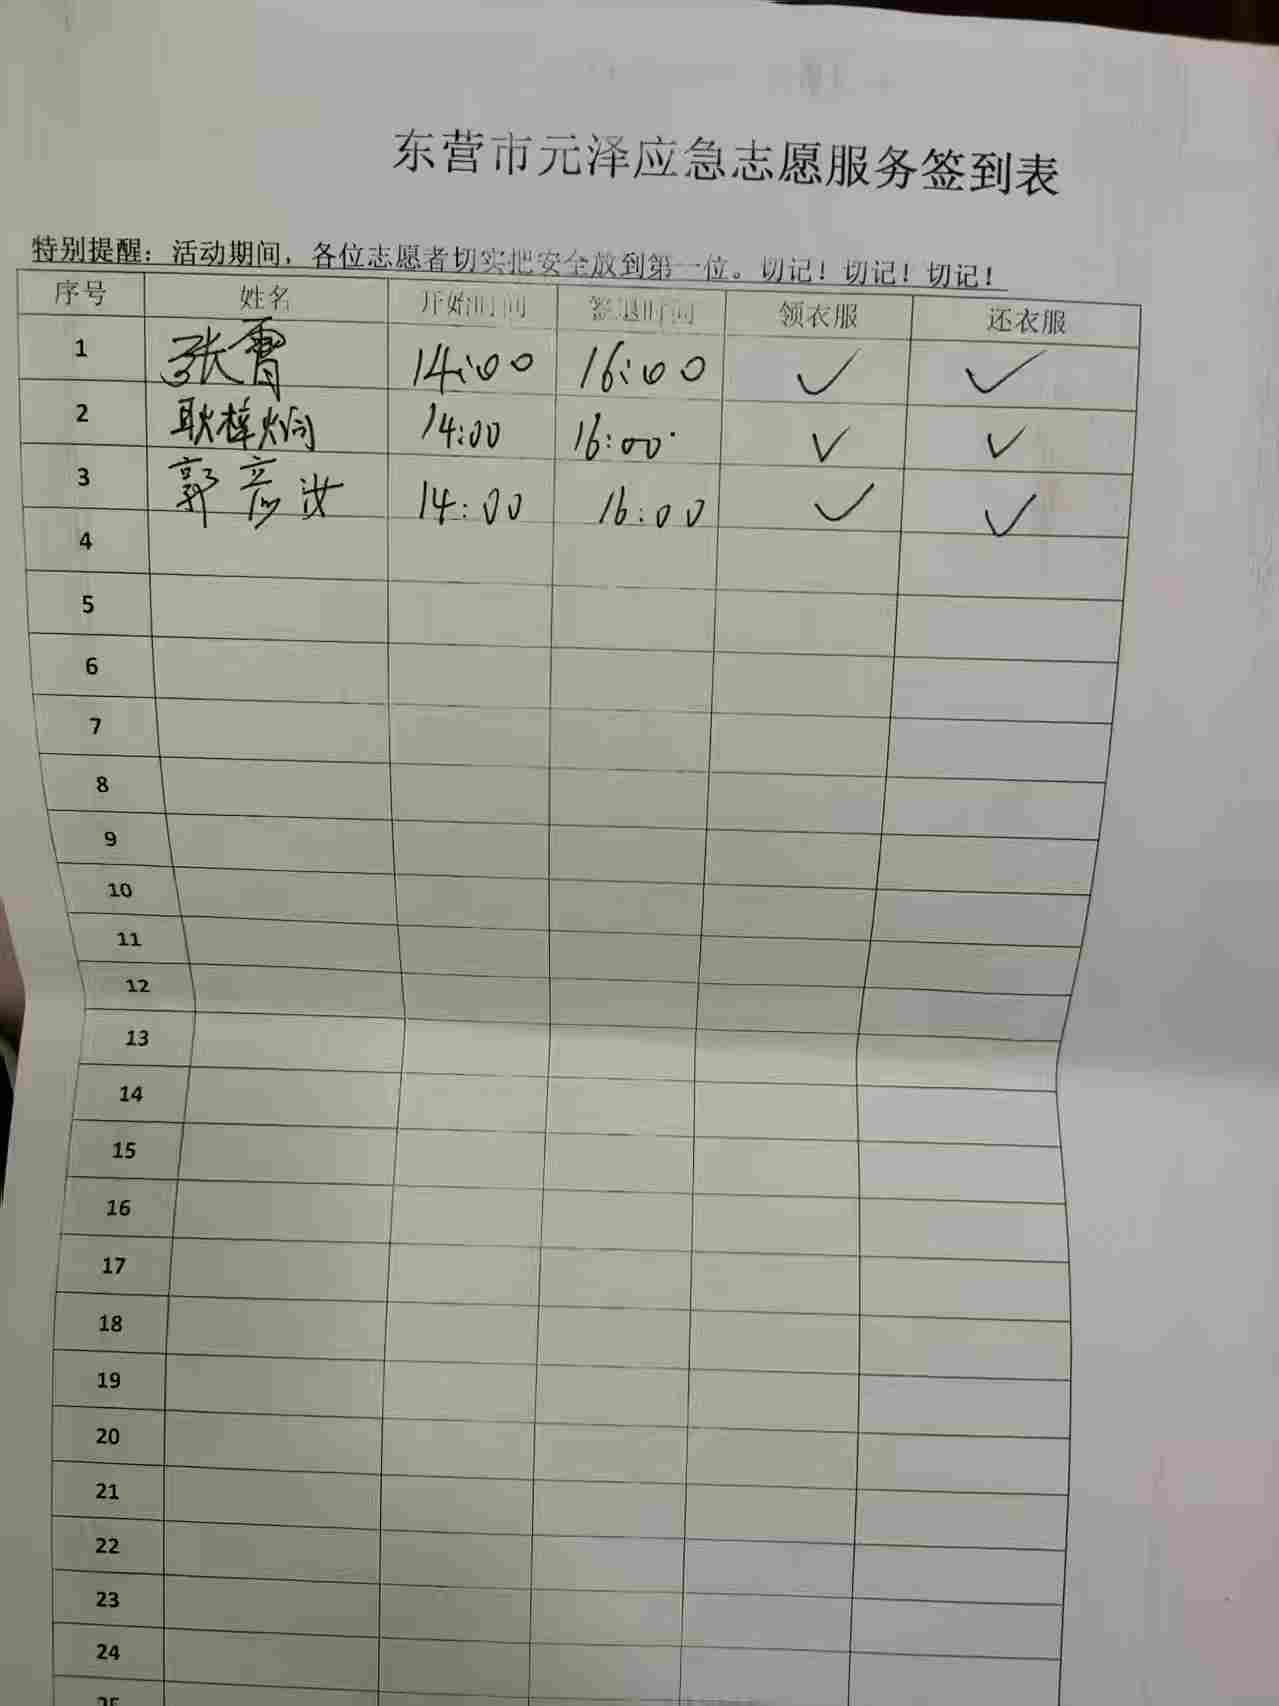 东营市元泽应急志愿服务签到表
特别提醒：活动期间，各位志愿者切实把安全放到第一位。切记！切记！切记！
序号 姓名 开始时间 签退时间 领衣服 还衣服
1 张霄 14:00 16:00 ✓ ✓
2 耿梓炯 14:00 16:00 ✓ ✓
3 郭彦汝 14:00 16:00 ✓ ✓
4
5
6
7
8
9
10
11
12
13
14
15
16
17
18
19
20
21
22
23
24